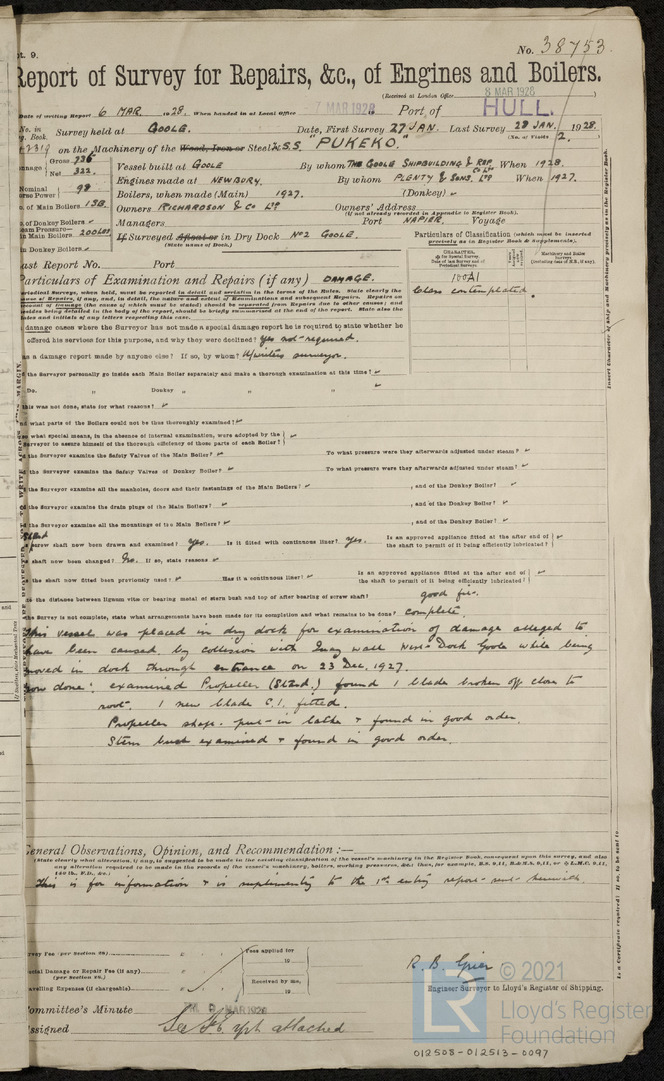 pt. 9.
No. 38753
Report of Survey for Repairs, &c., of Engines and Boilers.
(Received at London Office 8 MAR 1928 )
Date of writing Report 6 MAR. 1928. When handed in at Local Office 7 MAR 1928 Port of HULL.
No. in Survey held at GOOLE. Date, First Survey 27 JAN. Last Survey 28 JAN. 1928.
g. Book. (No. of Visits 2. )
on the Machinery of the Wood, Iron or Steel S.S. "PUKEKO."
Gross 736
Net 322.
Vessel built at GOOLE By whom THE GOOLE SHIPBUILDING & REP. Co Ld When 1928.
Nominal Horse Power 98
Engines made at NEWBURY. By whom PLENTY & SONS. Ltd When 1927.
of Main Boilers 1SB. Boilers, when made (Main) 1927. (Donkey)
of Donkey Boilers Owners RICHARDSON & Co Ltd Owners' Address
(If not already recorded in Appendix to Register Book).
Steam Pressure— in Main Boilers 200 Lbs Managers Port NAPIER. Voyage
in Donkey Boilers If Surveyed Afloat or in Dry Dock No 2 GOOLE.
(State name of Dock.)
Particulars of Classification (which must be inserted precisely as in Register Book & Supplements).
Last Report No. Port
100A1
Class contemplated.
Particulars of Examination and Repairs (if any) DAMAGE.
damage cases where the Surveyor has not made a special damage report he is required to state whether he
offered his services for this purpose, and why they were declined? Yes not required.
as a damage report made by anyone else? If so, by whom? U/writers surveyor.
the Surveyor personally go inside each Main Boiler separately and make a thorough examination at this time?
Do. Donkey " "
this was not done, state for what reasons?
what parts of the Boilers could not be thus thoroughly examined?
what special means, in the absence of internal examination, were adopted by the
Surveyor to assure himself of the thorough efficiency of those parts of each Boiler?
the Surveyor examine the Safety Valves of the Main Boiler? To what pressure were they afterwards adjusted under steam?
the Surveyor examine the Safety Valves of Donkey Boiler? To what pressure were they afterwards adjusted under steam?
the Surveyor examine all the manholes, doors and their fastenings of the Main Boilers? , and of the Donkey Boiler?
the Surveyor examine the drain plugs of the Main Boilers? , and of the Donkey Boiler?
the Surveyor examine all the mountings of the Main Boilers? , and of the Donkey Boiler?
screw shaft now been drawn and examined? Yes. Is it fitted with continuous liner? Yes. Is an approved appliance fitted at the after end of
the shaft to permit of it being efficiently lubricated?
shaft now been changed? No. If so, state reasons
the shaft now fitted been previously used? Has it a continuous liner? Is an approved appliance fitted at the after end of
the shaft to permit of it being efficiently lubricated?
the distances between lignum vitæ or bearing metal of stern bush and top of after bearing of screw shaft? good fit.
the Survey is not complete, state what arrangements have been made for its completion and what remains to be done? complete.
This vessel was placed in dry dock for examination of damage alleged to
have been caused by collision with Quay wall West Dock Goole while being
moved in dock through entrance on 23 Dec. 1927.
now done: examined Propeller (Stbd.) found 1 blade broken off close to
root. 1 new blade C.I. fitted.
Propeller shaft put in lathe & found in good order.
Stern bush examined & found in good order.
General Observations, Opinion, and Recommendation:—
(State clearly what alteration, if any, is suggested to be made in the existing classification of the vessel's machinery in the Register Book, consequent upon this survey, and also
any alteration required to be made in the records of the vessel's machinery, boilers, working pressures, &c.; thus, for example, B.S. 9,11, B.& M.S. 9,11, or L.M.C. 9,11,
This is for information & is supplimentry to the 1st entry report sent herewith.
Survey Fee (per Section 28)
Special Damage or Repair Fee (if any)
(per Section 28.)
Travelling Expenses (if chargeable)
Fees applied for
19
Received by me,
19
R. B. Grier
Engineer Surveyor to Lloyd's Register of Shipping.
Committee's Minute 9 MAR 1928
Assigned See F.E. rpt attached
© 2021
Lloyd's Register
Foundation
012508-012513-0097